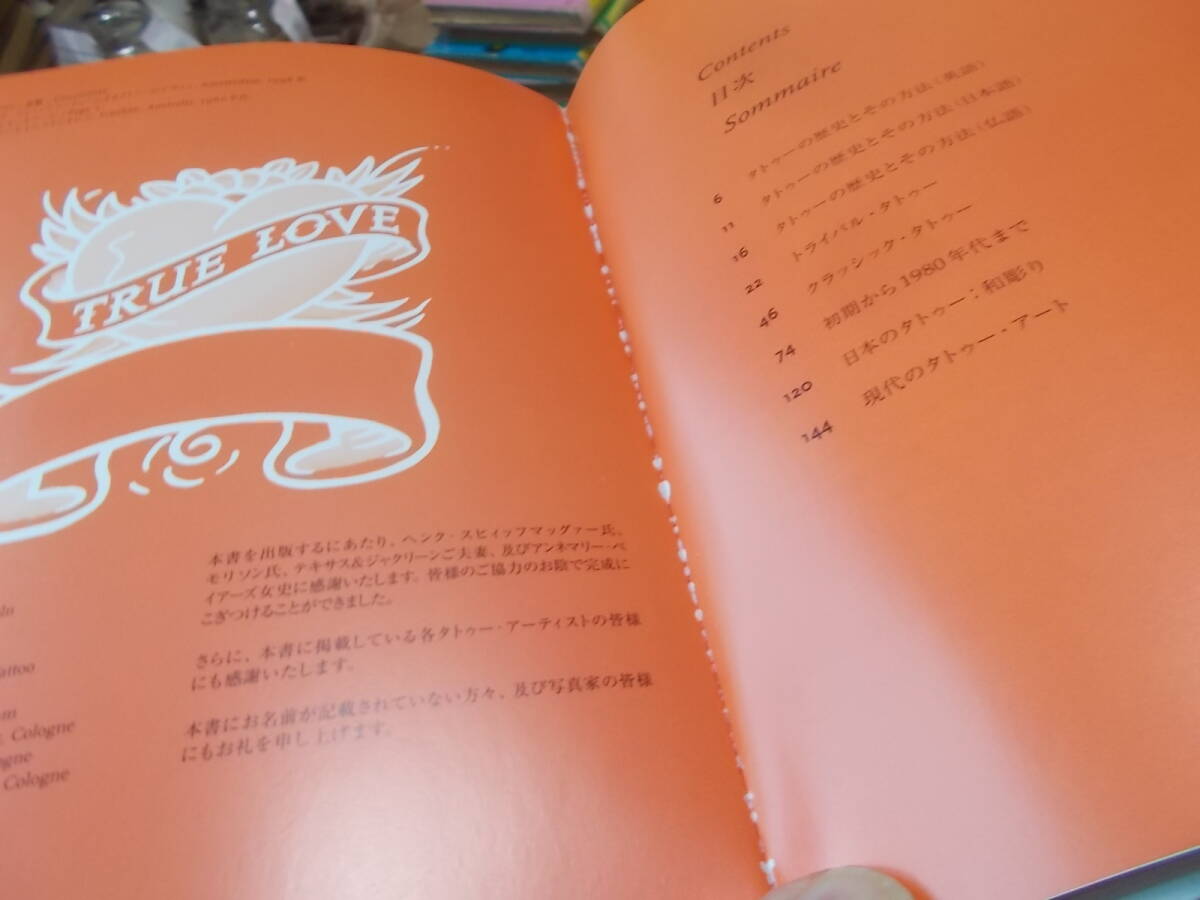 TRUE LOVE
本書を出版するにあたり、ヘンク・スヒィッフマッグァー氏、
モリソン氏、テキサス&ジャクリーンご夫妻、及びアンネマリー・ベ
イアーズ女史に感謝いたします。皆様のご協力のお陰で完成に
こぎつけることができました。
さらに、本書に掲載している各タトゥー・アーティストの皆様
にも感謝いたします。
本書にお名前が記載されていない方々、及び写真家の皆様
にもお礼を申し上げます。
Cologne
Cologne
Contents
目次
Sommaire
6 タトゥーの歴史とその方法(英語)
11 タトゥーの歴史とその方法(日本語)
16 タトゥーの歴史とその方法(仏語)
22 トライバル・タトゥー
46 クラッシック・タトゥー
74 初期から1980年代まで
120 日本のタトゥー:和彫り
144 現代のタトゥー・アート